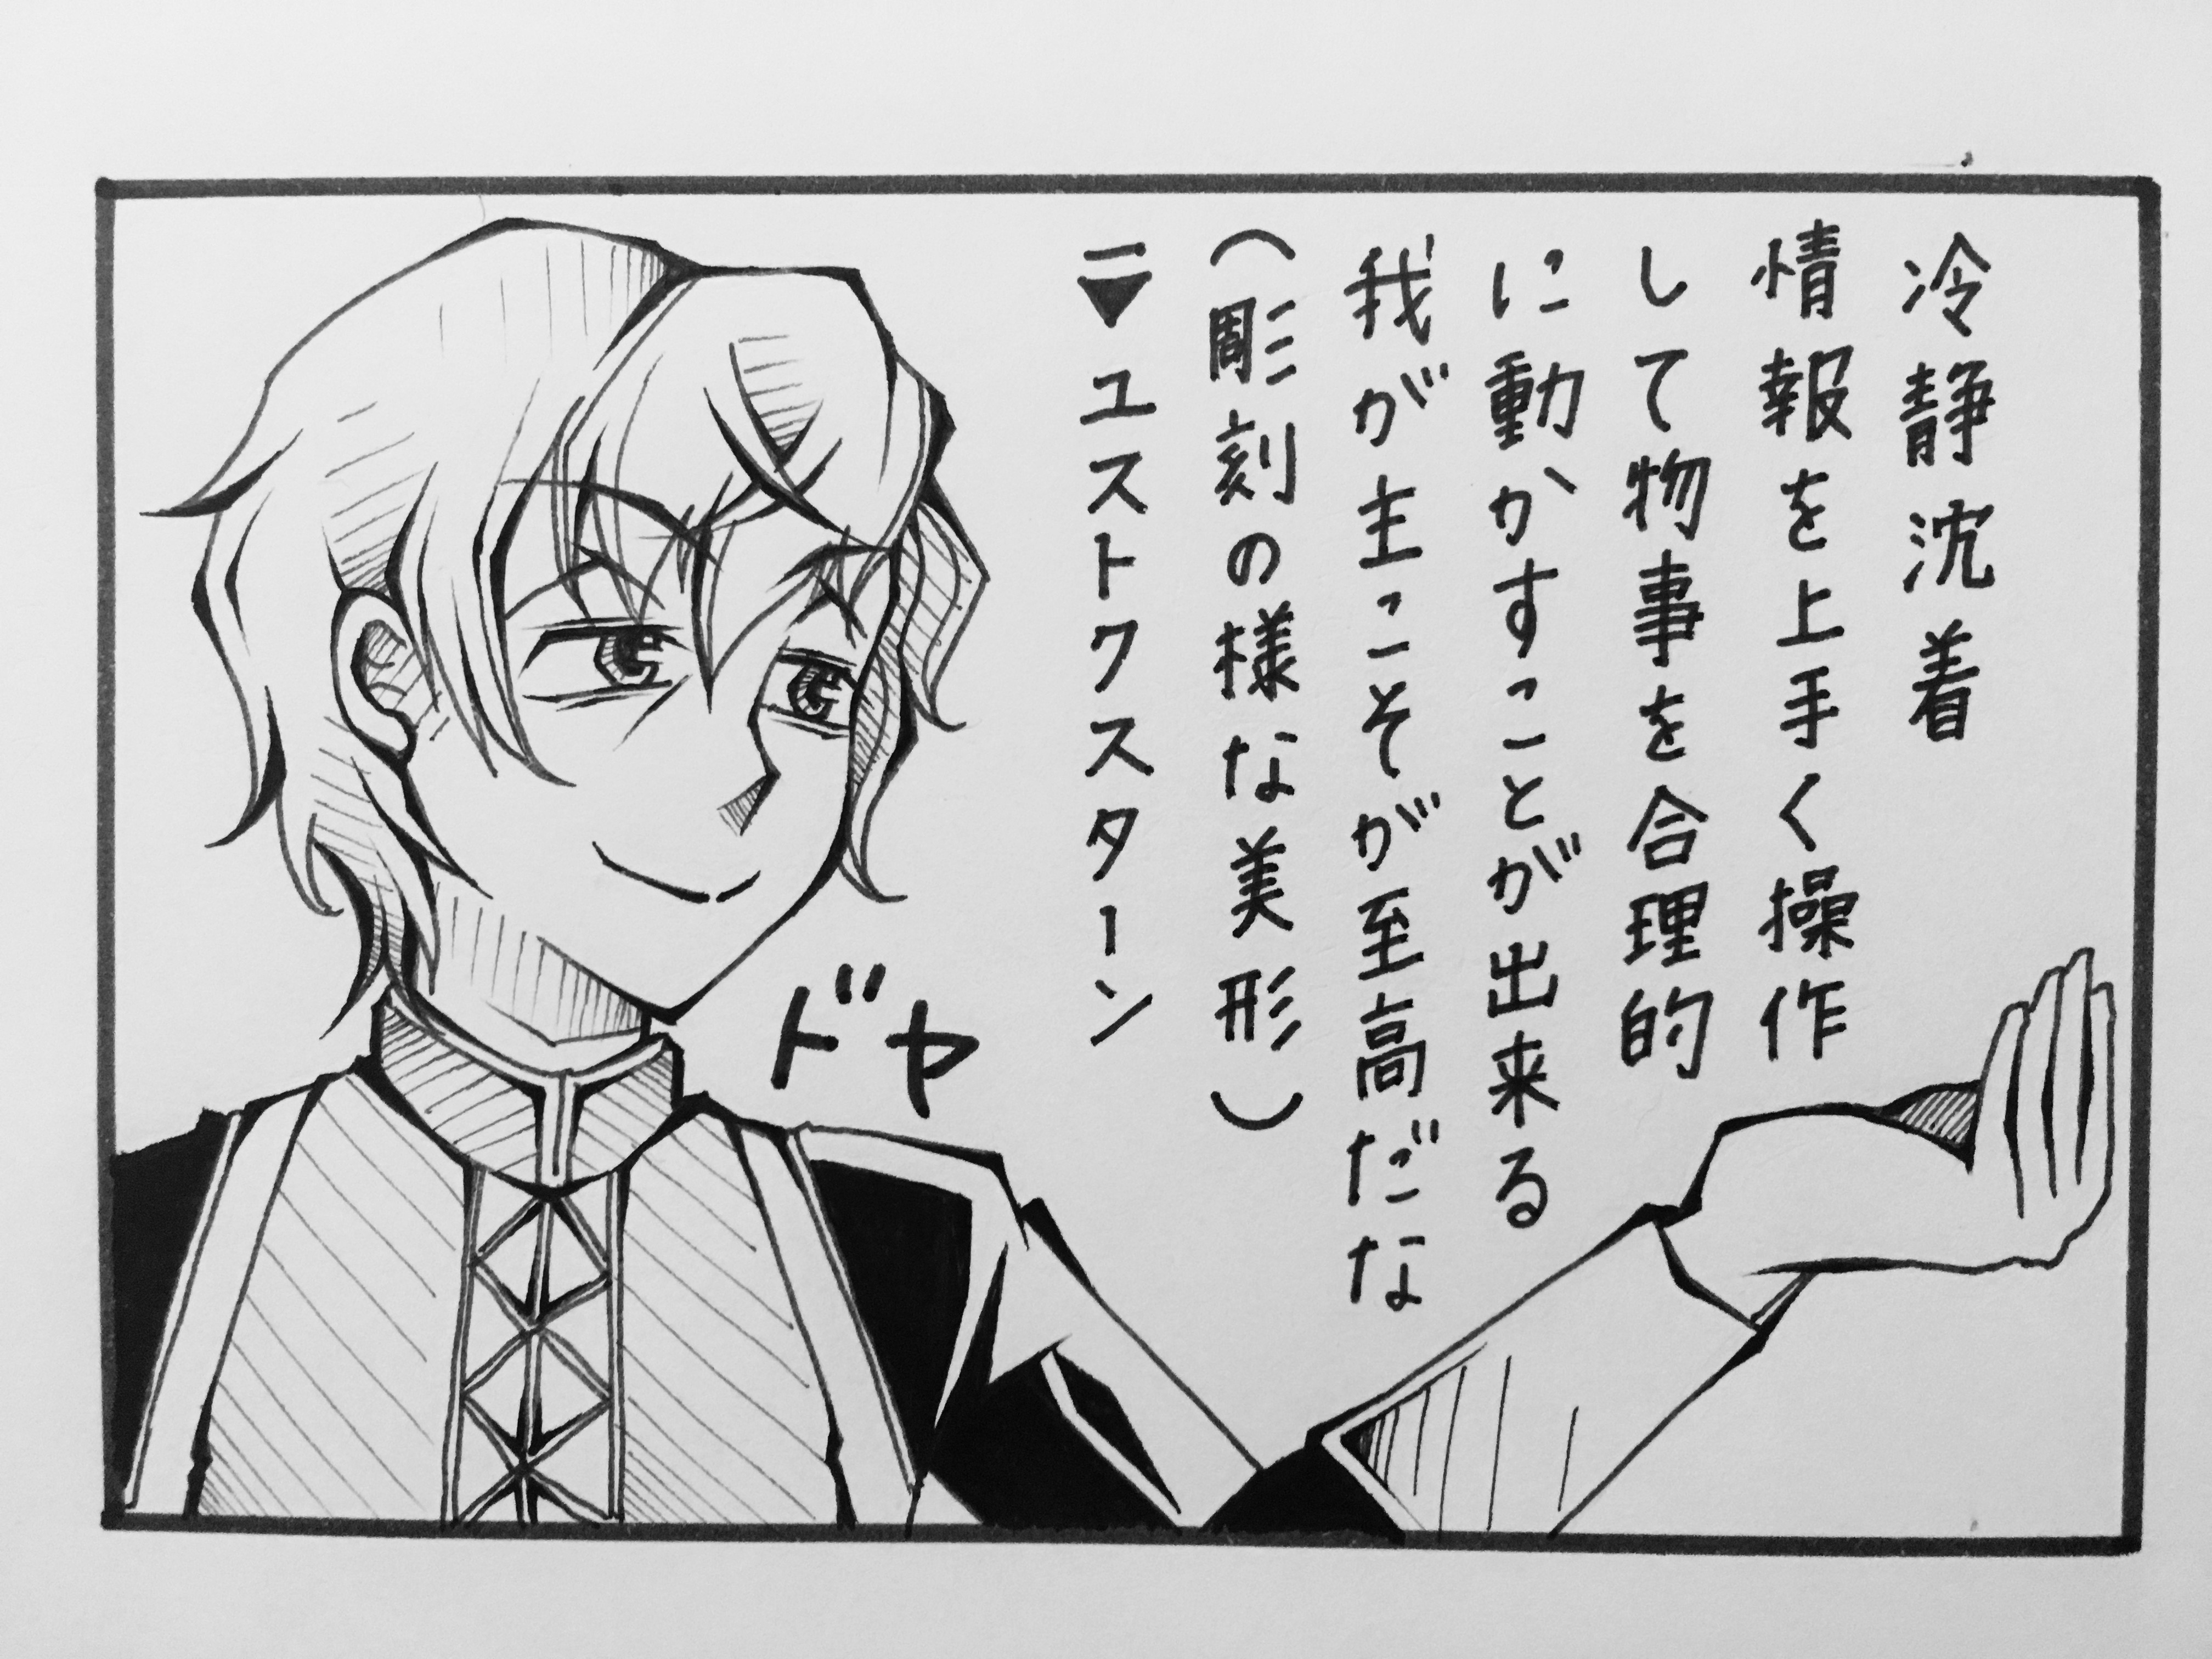 冷静沈着
情報を上手く操作
して物事を合理的
に動かすことが出来る
我が主こそが至高だな
(彫刻の様な美形)
ユストクスターン
ドヤ